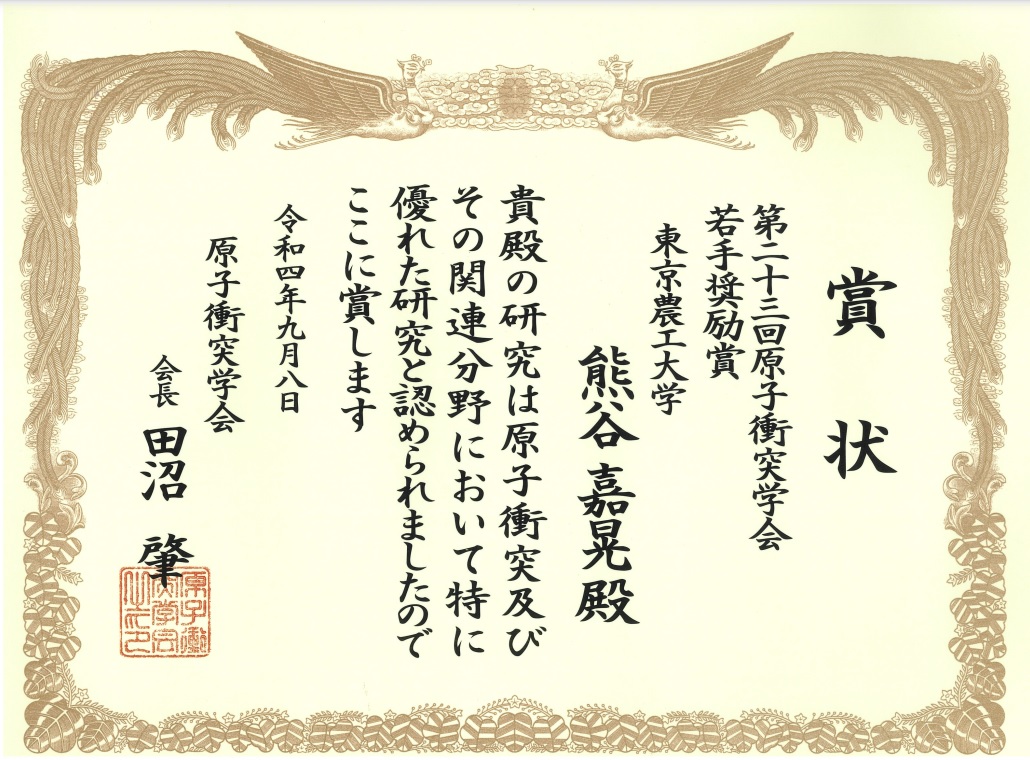 賞状
第二十三回原子衝突学会
若手奨励賞
東京農工大学
熊谷 嘉晃 殿
貴殿の研究は原子衝突及び
その関連分野において特に
優れた研究と認められましたので
ここに賞します
令和四年九月八日
原子衝突学会
会長 田沼 肇
原子衝
突学会
之印